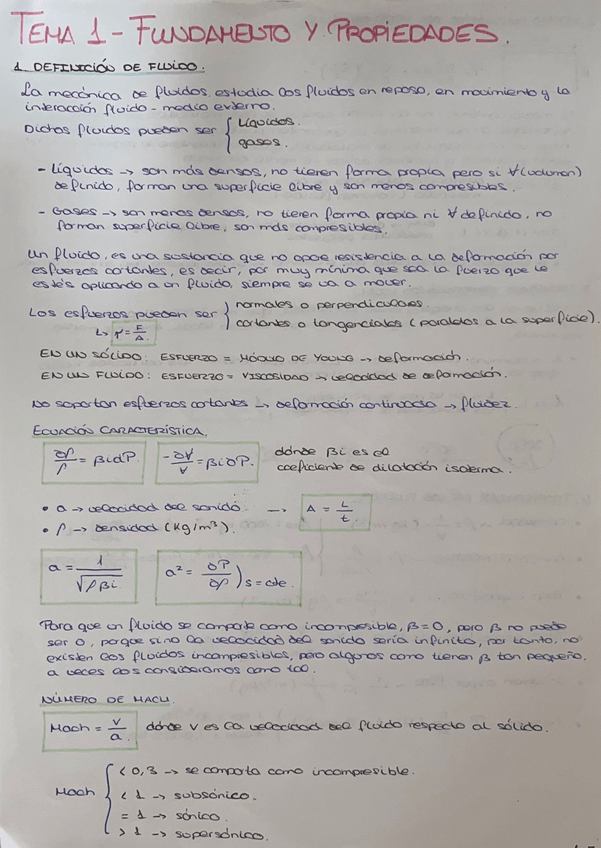 TEMA 1 - FUNDAMENTO Y PROPIEDADES.
1. DEFINICIÓN DE FLUIDO.
La mecánica de fluidos estudia los fluidos en reposo, en movimiento y la
interacción fluido - medio externo.
Dichos fluidos pueden ser { Líquidos.
gases.
- Líquidos → son más densos, no tienen forma propia pero si V (volumen)
definido, forman una superficie libre y son menos compresibles.
- Gases → son menos densos, no tienen forma propia ni V definido, no
forman superficie libre, son más compresibles.
Un fluido, es una sustancia que no opone resistencia a la deformación por
esfuerzos cortantes, es decir, por muy mínima que sea la fuerza que le
estés aplicando a un fluido, siempre se va a mover.
Los esfuerzos pueden ser } normales o perpendiculares.
cortantes o tangenciales (paralelos a la superficie).
↳ τ = F/A.
EN UN SÓLIDO: ESFUERZO = MÓDULO DE YOUNG → deformación.
EN UN FLUIDO: ESFUERZO = VISCOSIDAD → velocidad de deformación.
No soportan esfuerzos cortantes → deformación continuada → fluidez.
ECUACIÓN CARACTERÍSTICA.
∂ρ/ρ = βi dP. -∂V/V = βi ∂P. dónde βi es el
coeficiente de dilatación isoterma.
• a → velocidad del sonido. → A = L/t
• ρ → densidad (Kg/m³).
a = 1/√ρβi a² = ∂P/∂ρ)s = cte.
Para que un fluido se comporte como incompresible, β = 0, pero β no puede
ser 0, porque sino la velocidad del sonido sería infinita, por tanto, no
existen los fluidos incompresibles, pero algunos como tienen β tan pequeño,
a veces los consideramos como tal.
NÚMERO DE MACH.
Mach = v/a. dónde v es la velocidad del fluido respecto al sólido.
Mach { < 0,3 → se comporta como incompresible.
< 1 → subsónico.
= 1 → sónico.
> 1 → supersónico.